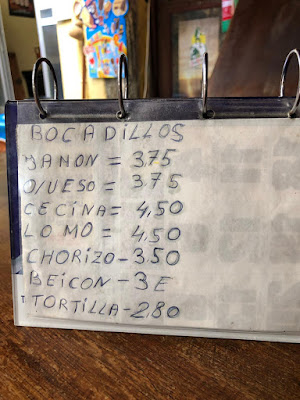 BOCADILLOS
JAMON = 375
Q/UESO = 375
CECINA = 4,50
LOMO = 4,50
CHORIZO - 350
BEICON - 3E
TORTILLA - 280